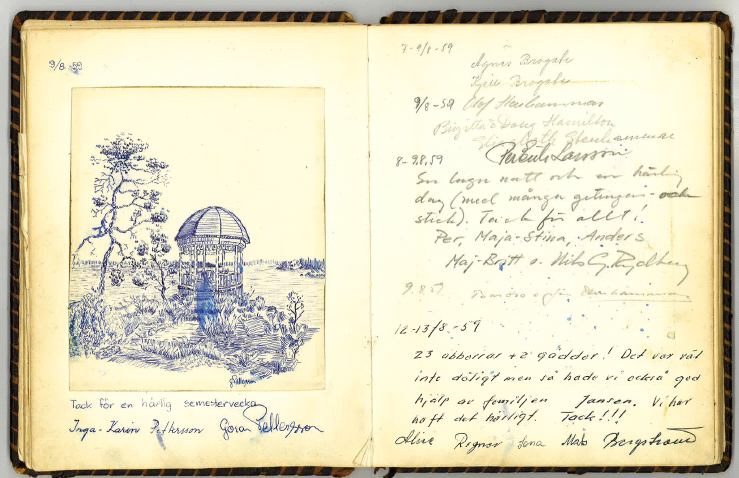 9/8-59
Tack för en härlig semestervecka
Inga-Karin Pettersson Göran Pettersson
7-9/8-59
Agnes Brogste
Kjell Brogste
9/8-59
Birgitta & Doug Hamilton
8-9.8.59
Per-Erik Larsson
En lugn natt och en härlig
dag (med många getingar
stick). Tack för allt!
Per, Maja-Stina, Anders
Maj-Britt o. Nils G. Rydberg
9.8.59
12-13/8-59
23 abborrar + 2 gäddor! Det var väl
inte dåligt men så hade vi också god
hjälp av familjen Janson. Vi har
haft det härligt. Tack!!!
Ragnar Lena Mats Bergstrand